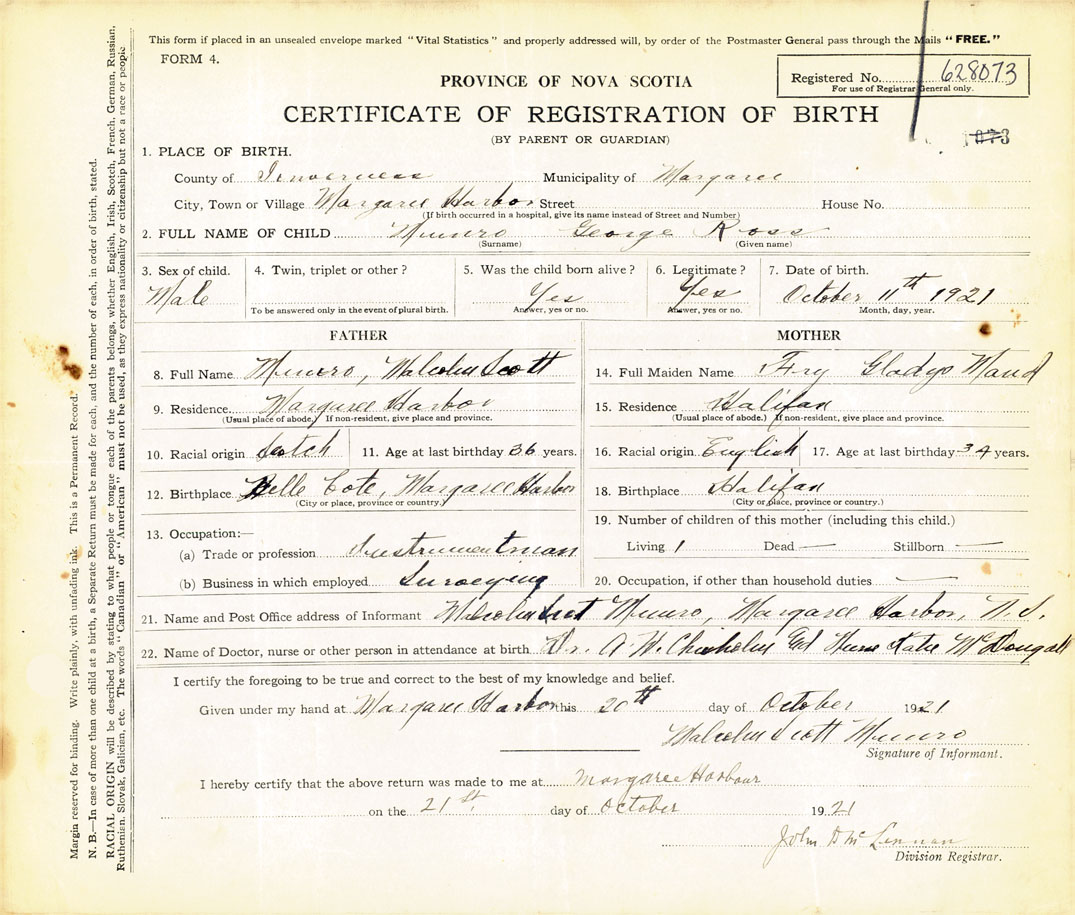 This form if placed in an unsealed envelope marked "Vital Statistics" and properly addressed will, by order of the Postmaster General pass through the Mails "FREE."
FORM 4.
PROVINCE OF NOVA SCOTIA
Registered No. 628073
For use of Registrar General only.
CERTIFICATE OF REGISTRATION OF BIRTH
(BY PARENT OR GUARDIAN)
1. PLACE OF BIRTH.
County of Inverness Municipality of Margaree
City, Town or Village Margaree Harbor Street House No.
(If birth occurred in a hospital, give its name instead of Street and Number)
2. FULL NAME OF CHILD Munro George Ross
(Surname) (Given name)
3. Sex of child. 4. Twin, triplet or other? 5. Was the child born alive? 6. Legitimate? 7. Date of birth.
Male Yes Yes October 11th 1921
To be answered only in the event of plural birth. Answer, yes or no. Answer, yes or no. Month, day, year.
FATHER MOTHER
8. Full Name Munro, Malcolm Scott 14. Full Maiden Name Fry Gladys Maud
9. Residence Margaree Harbor 15. Residence Halifax
(Usual place of abode.) If non-resident, give place and province. (Usual place of abode.) If non-resident, give place and province.
10. Racial origin Scotch 11. Age at last birthday 36 years. 16. Racial origin English 17. Age at last birthday 34 years.
12. Birthplace Belle Cote, Margaree Harbor 18. Birthplace Halifax
(City or place, province or country.) (City or place, province or country.)
13. Occupation:— 19. Number of children of this mother (including this child.)
(a) Trade or profession Instrumentman Living 1 Dead — Stillborn —
(b) Business in which employed Surveying 20. Occupation, if other than household duties —
21. Name and Post Office address of Informant Malcolm Scott Munro, Margaree Harbor, N. S.
22. Name of Doctor, nurse or other person in attendance at birth Dr. A. W. Chisholm Nurse Katie McDougall
I certify the foregoing to be true and correct to the best of my knowledge and belief.
Given under my hand at Margaree Harbor this 20th day of October 1921
Malcolm Scott Munro
Signature of Informant.
I hereby certify that the above return was made to me at Margaree Harbour
on the 21st. day of October 1921
John D McLennan
Division Registrar.
Margin reserved for binding. Write plainly, with unfading ink. This is a Permanent Record.
N. B.—In case of more than one child at a birth, a Separate Return must be made for each, and the number of each, in order of birth, stated.
RACIAL ORIGIN will be described by stating to what people or tongue each of the parents belongs, whether English, Irish, Scotch, French, German, Russian,
Ruthenian, Slovak, Galician, etc. The words "Canadian" or "American" must not be used, as they express nationality or citizenship but not a race or people